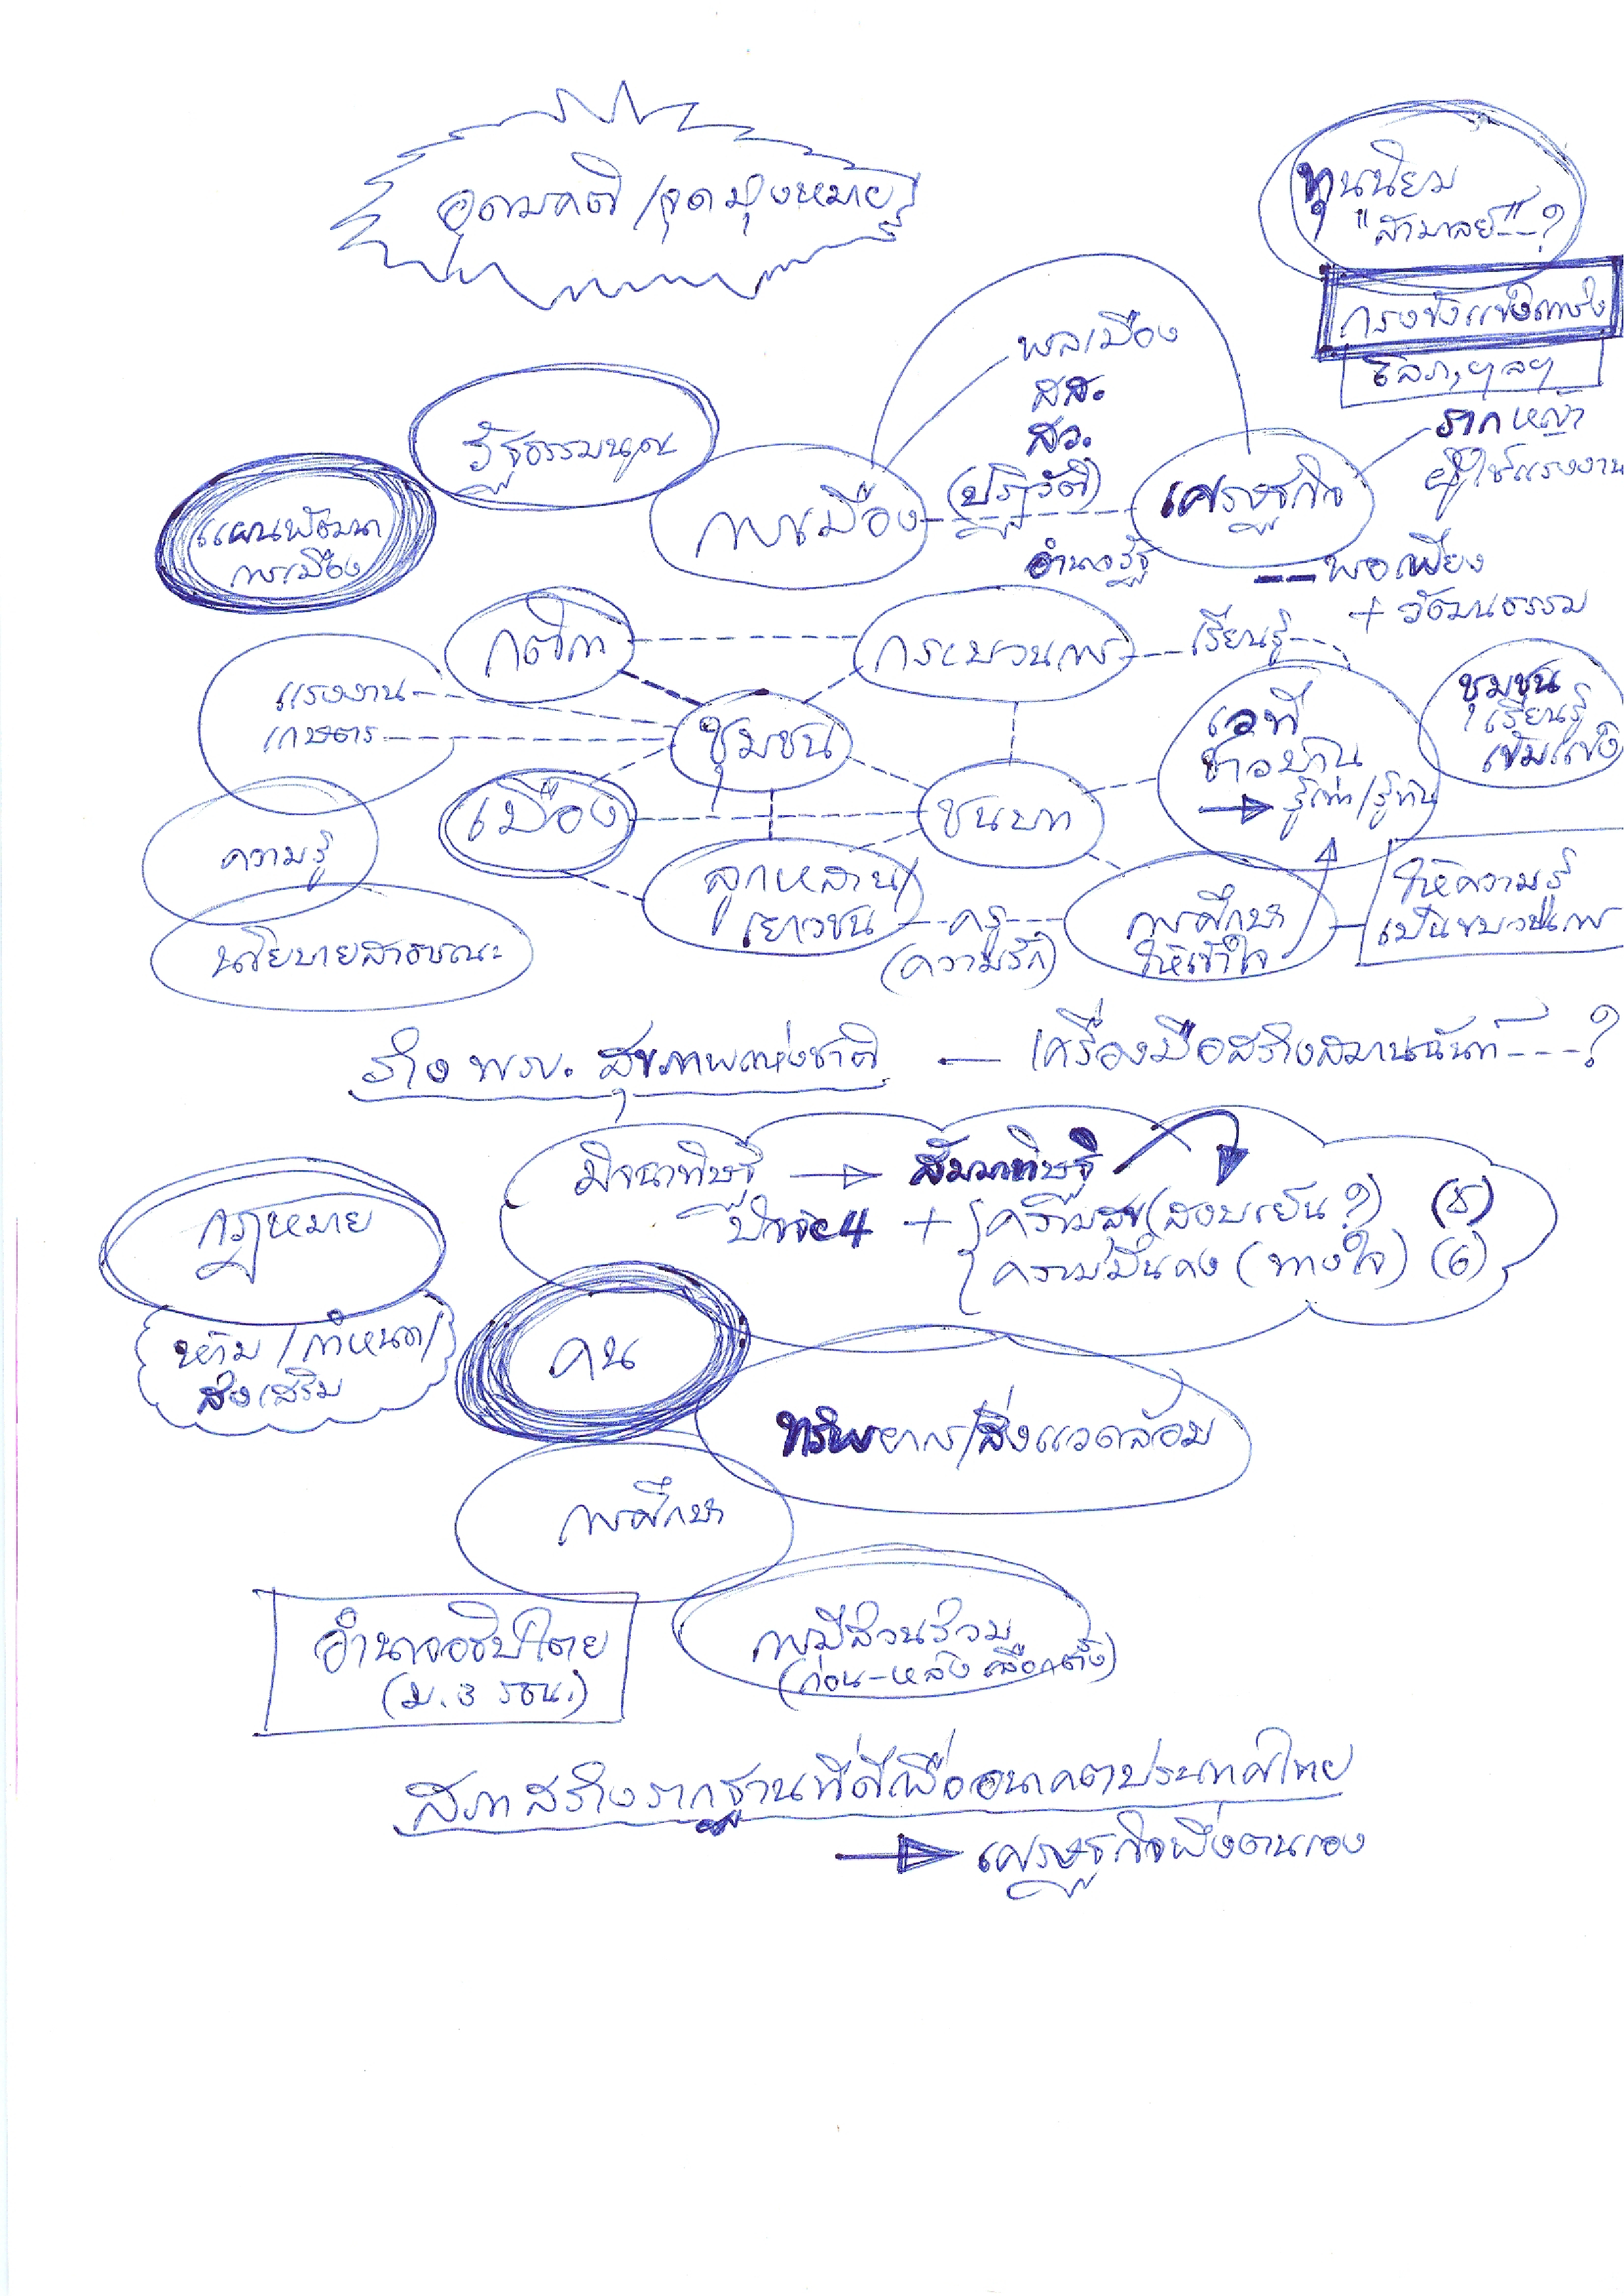 อุดมคติ/จุดมุ่งหมาย
ทุนนิยม
"สามาลย์"---?
กรงขังแห่ง
โลภ, ฯลฯ
พลเมือง
สส.
สว.
(ปฏิวัติ)
อำนาจรัฐ
รากหญ้า
ผู้ใช้แรงงาน
รัฐธรรมนูญ
การเมือง
เศรษฐกิจ
แผนพัฒนา
การเมือง
พอเพียง
+ วัฒนธรรม
กติกา
กระบวนการ
เรียนรู้
แรงงาน
เกษตร
ชุมชน
เวที
ชาวบ้าน
→ รู้เท่า/รู้ทัน
ชุมชน
เรียนรู้
เข้มแข็ง
เมือง
ชนบท
ความรู้
ลูกหลาน/
เยาวชน
ครู
(ความรัก)
การศึกษา
ให้เข้าใจ
ให้ความรู้
เป็นขบวนการ
นโยบายสาธารณะ
ร่าง พรบ. สุขภาพแห่งชาติ — เครื่องมือสร้างสมานฉันท์---?
มิจฉาทิษฐิ → สัมมาทิษฐิ
ปัจจัย 4 + ความสุข (สงบเย็น?) (5)
ความมั่นคง (ทางใจ) (6)
กฎหมาย
ห้าม/กำหนด/
ส่งเสริม
คน
ทรัพยากร/สิ่งแวดล้อม
การศึกษา
อำนาจอธิปไตย
(ม.3 รธน.)
การมีส่วนร่วม
(ก่อน-หลัง เลือกตั้ง)
สภาสร้างรากฐานที่ดีเพื่ออนาคตประเทศไทย
→ เศรษฐกิจพึ่งตนเอง